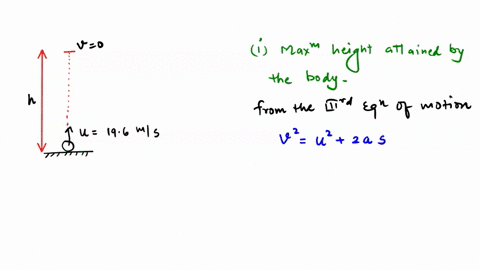 v=0
h
u = 19.6 m/s
(i) Maxᵐ height attained by
the body.
from the IIIʳᵈ Eqⁿ of motion
v² = u² + 2as